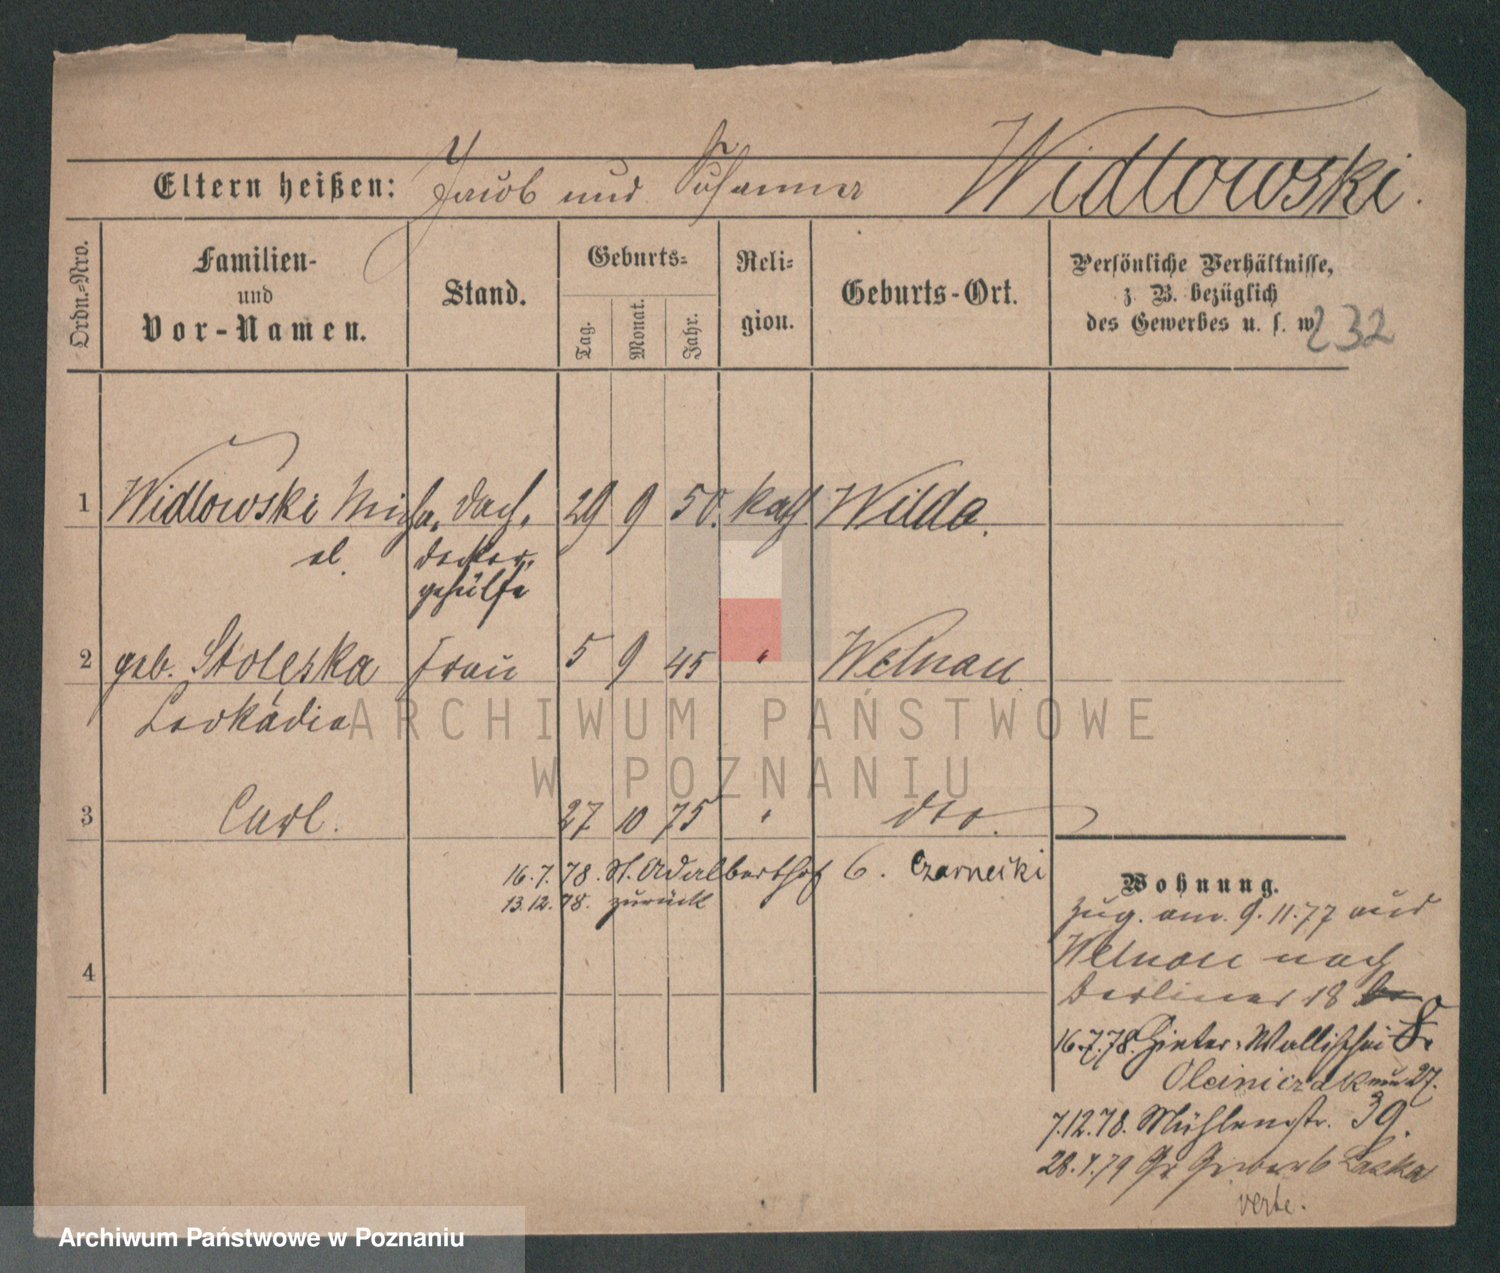 Eltern heißen: Jacob und Susanna Widlowski.
Ordn.-Nro.
Familien-
und
Vor-Namen.
Stand.
Geburts-
Tag.
Monat.
Jahr.
Reli-
gion.
Geburts-Ort.
Persönliche Verhältnisse,
z. B. bezüglich
des Gewerbes u. s. w.
232
1 Widlowski Micha- Dach- 29 9 50. kath Wilda.
el. decker-
gehülfe
2 geb. Stoleska Frau 5 9 45 " Welnau
Leokadia
3 Carl. 27 10 75 " dto.
16.7.78. St. Adalberthof 6. Czarnecki
13.12.78. zurück
4
Wohnung.
zug. am 9.11.77 aus
Welnau nach
Berliner 18
16.7.78. Hinter-Wallischei 8.
Oleiniczak 27.
7.12.78. Mühlenstr. 39.
28.X.79 Gr Gerberstr 6 Laska
verte.
ARCHIWUM PAŃSTWOWE
W POZNANIU
Archiwum Państwowe w Poznaniu